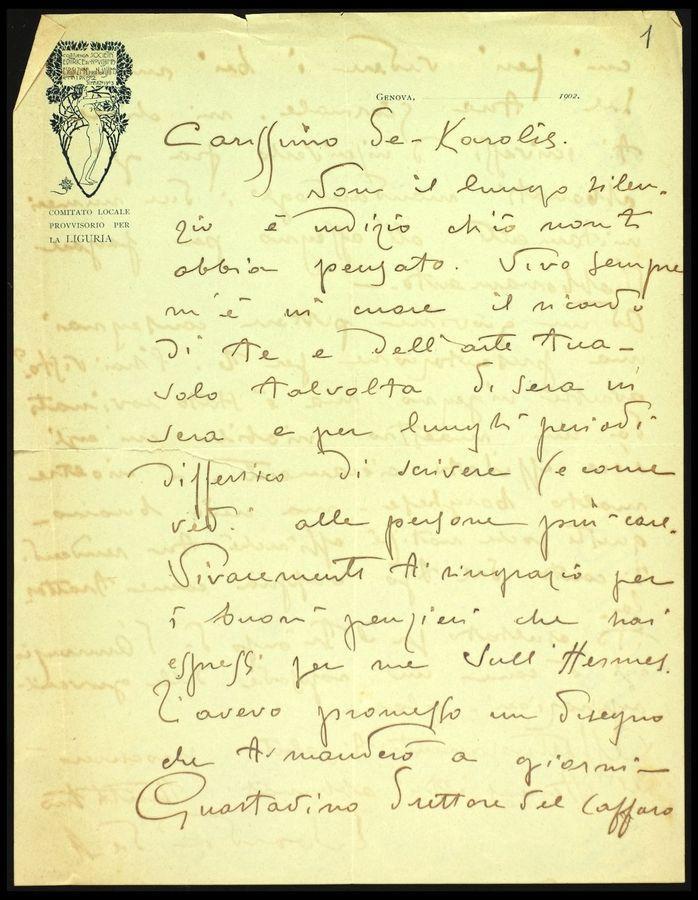 1
COMITATO LOCALE
PROVVISORIO PER
LA LIGURIA
GENOVA, 1902.
Carissimo De-Karolis.
Non il lungo silen-
zio è indizio ch'io non t
abbia pensato. Vivo sempre
m'è in cuore il ricordo
di te e dell'arte tua -
solo talvolta di sera in
sera e per lunghi periodi
differisco di scrivere (e come
vedi alle persone più care.
Vivacemente ti ringrazio per
i buoni pensieri che hai
espressi per me sull'Hermes.
T'avevo promesso un disegno
che ti manderò a giorni -
Guastavino direttore del Caffaro